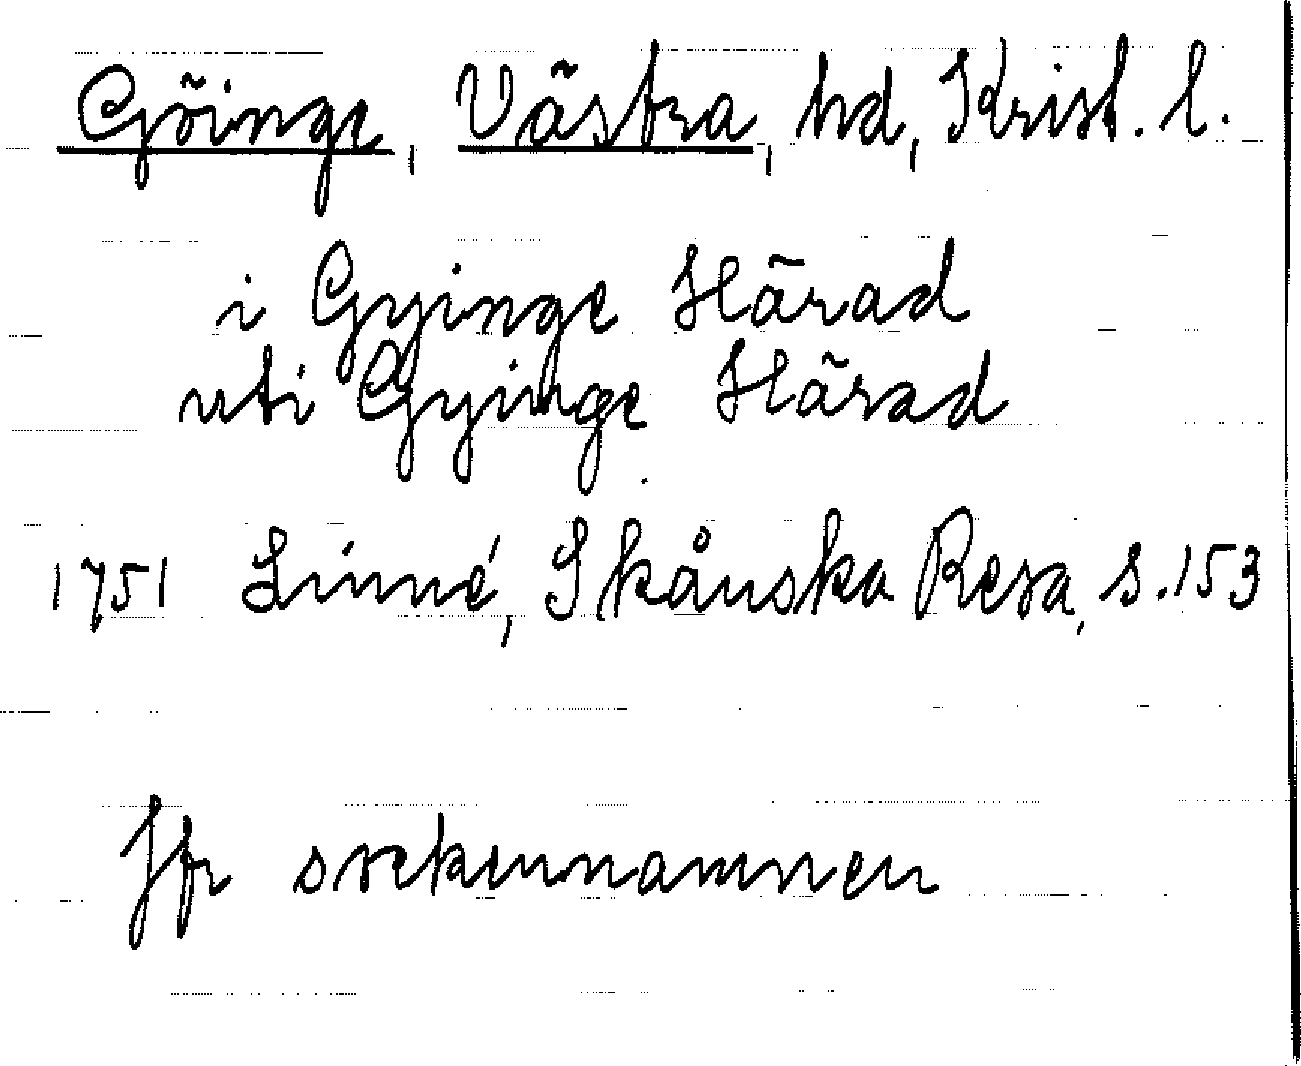 Göinge, Västra, hd, Krist. l.
i Gyinge Härad
uti Gyinge Härad
1751 Linné, Skånska Resa, s. 153
Jfr sockennamnen